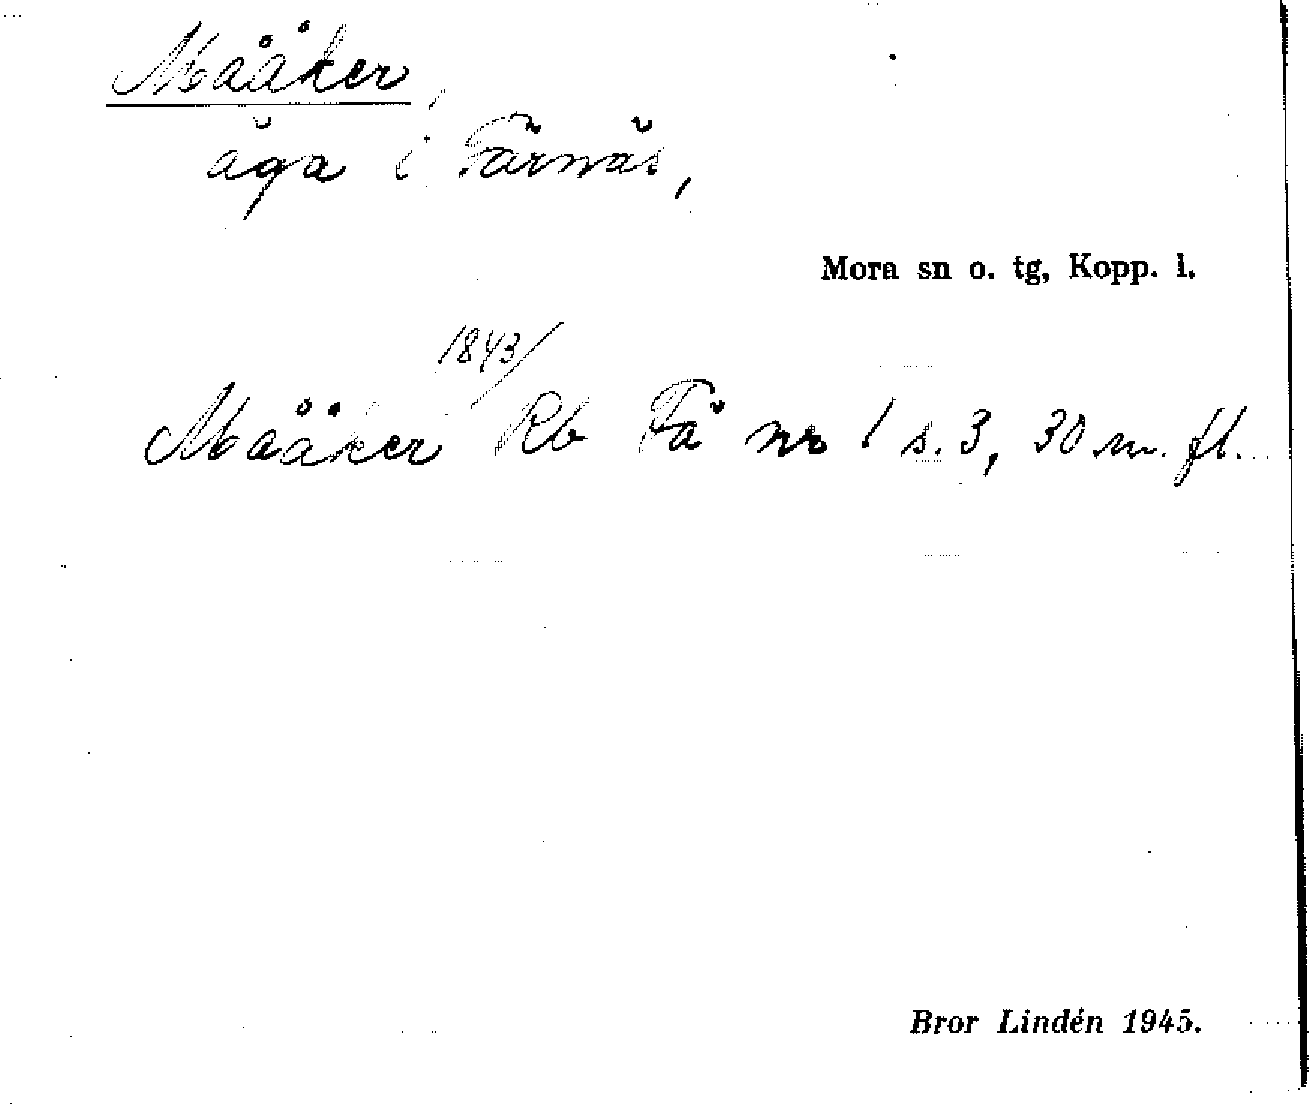 Mååker,
äga i Färnäs,
Mora sn o. tg, Kopp. l.
1843/
Mååker Rb Fä nr 1 s. 3, 30 m. fl.
Bror Lindén 1945.